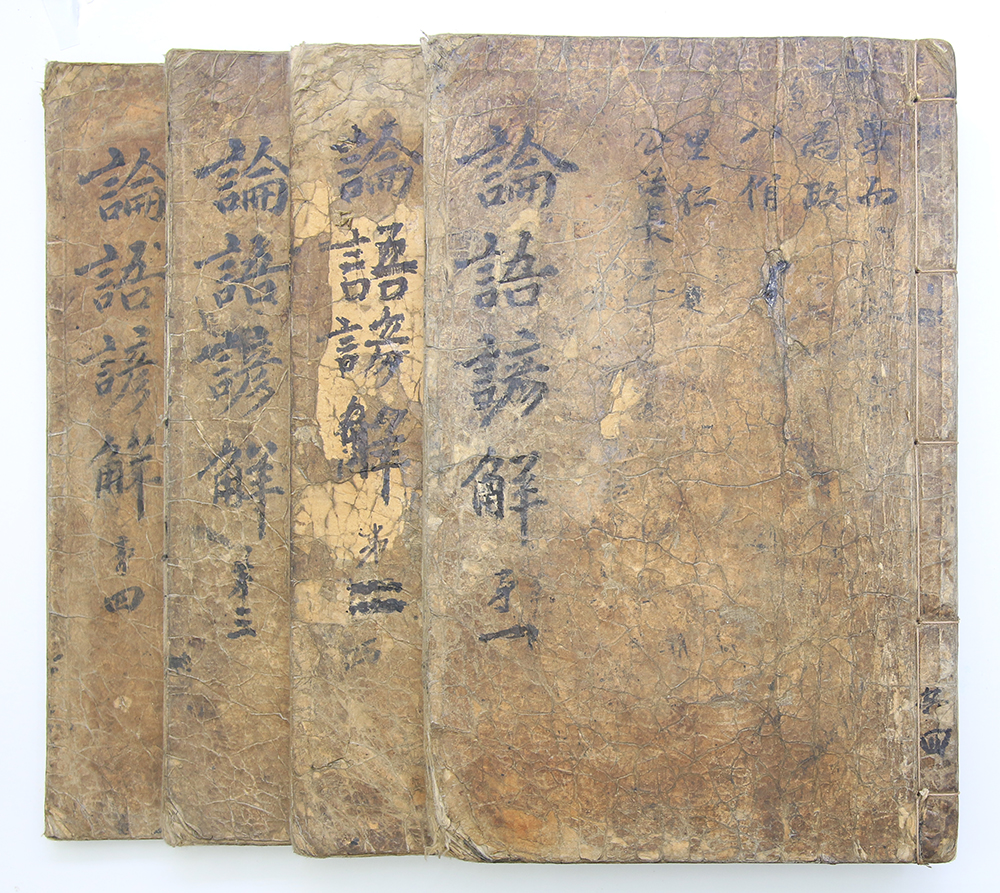 學而
為政
八佾
里仁
公冶長
論語諺解 第一
論語諺解 第二
論語諺解 第三
論語諺解 第四
共四